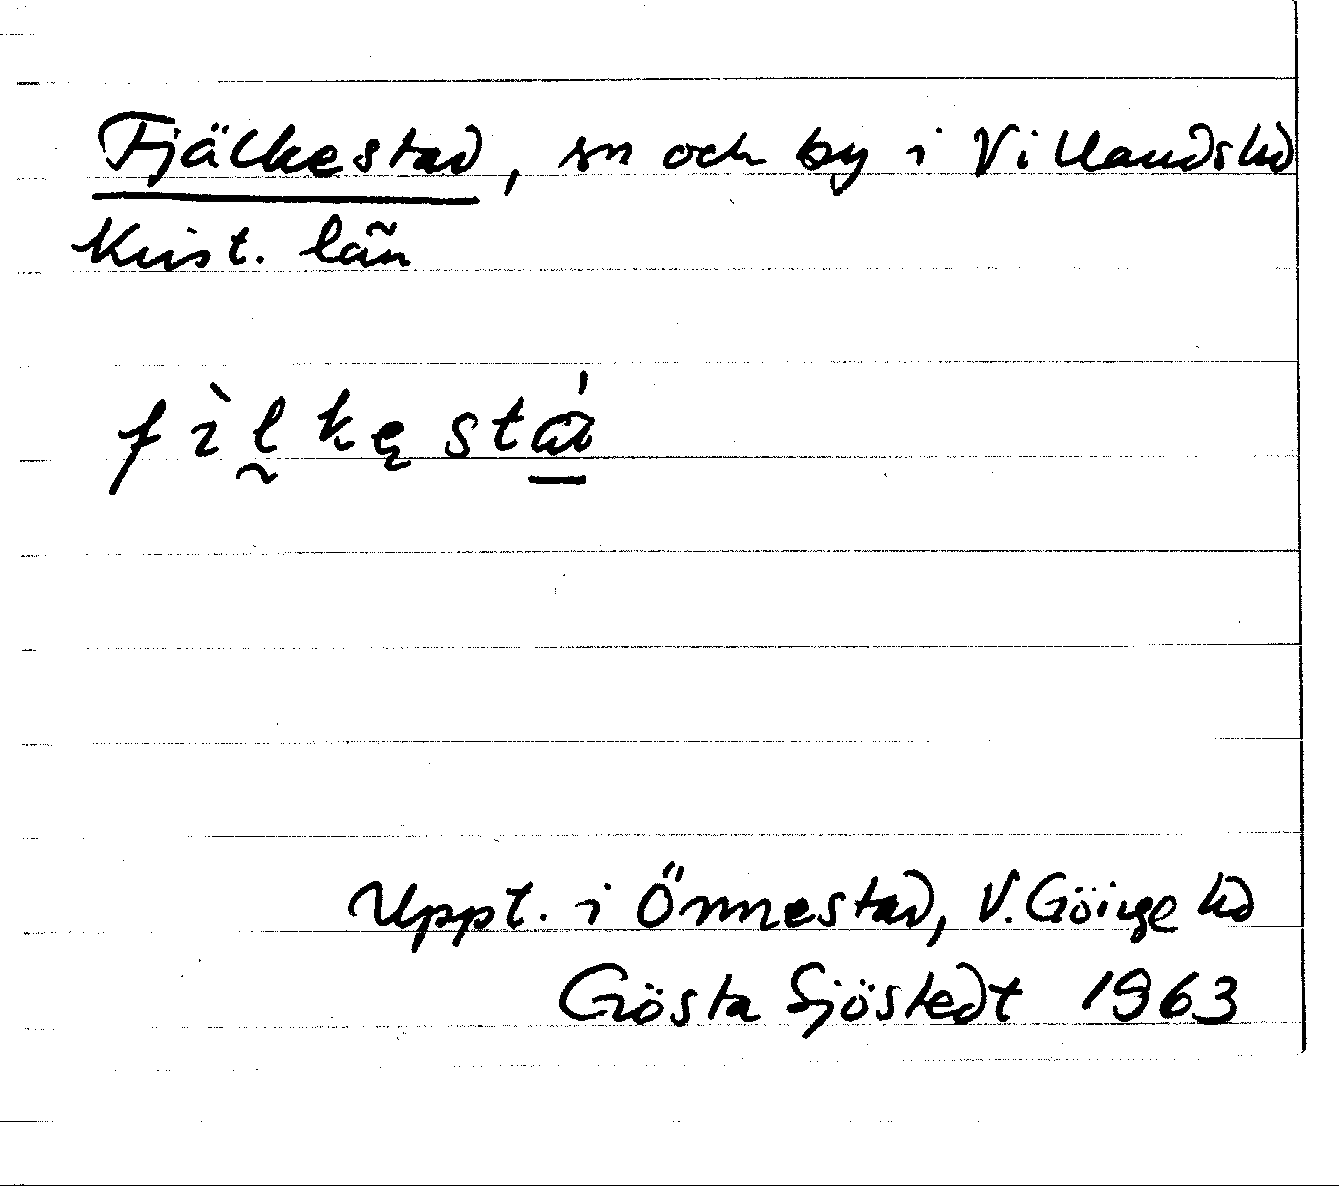 Fjälkestad, sn och by i Villands hd
Krist. län
fìl̰kęstá̱
Uppt. i Önnestad, V. Göinge hd
Gösta Sjöstedt 1963